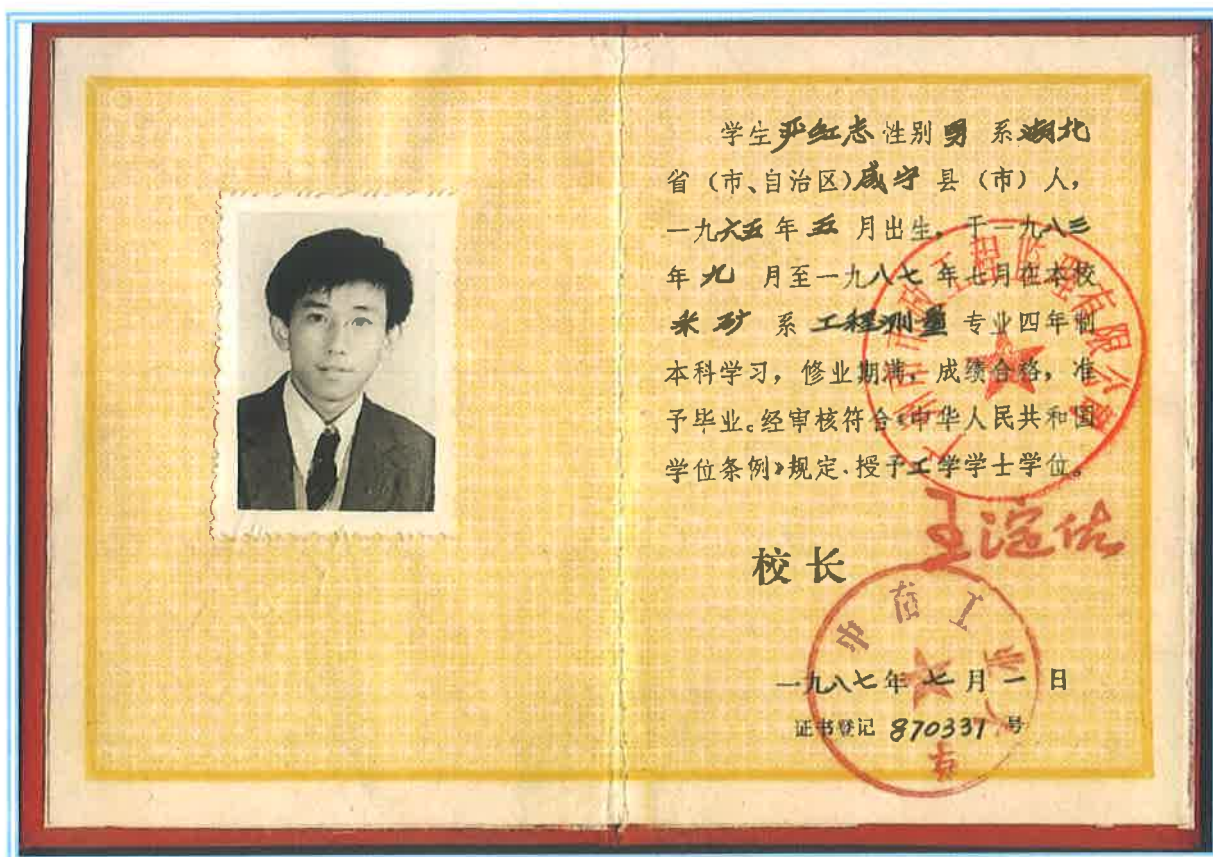 学生严红志性别男 系湖北
省（市、自治区）咸宁县（市）人，
一九六五年五月出生，于一九八三
年九月至一九八七年七月在本校
采矿系工程测量专业四年制
本科学习，修业期满，成绩合格，准
予毕业。经审核符合《中华人民共和国
学位条例》规定.授予工学学士学位。
校长
王淀佐
中南工业大学
一九八七年七月一日
证书登记 870331 号
工程监理有限公司